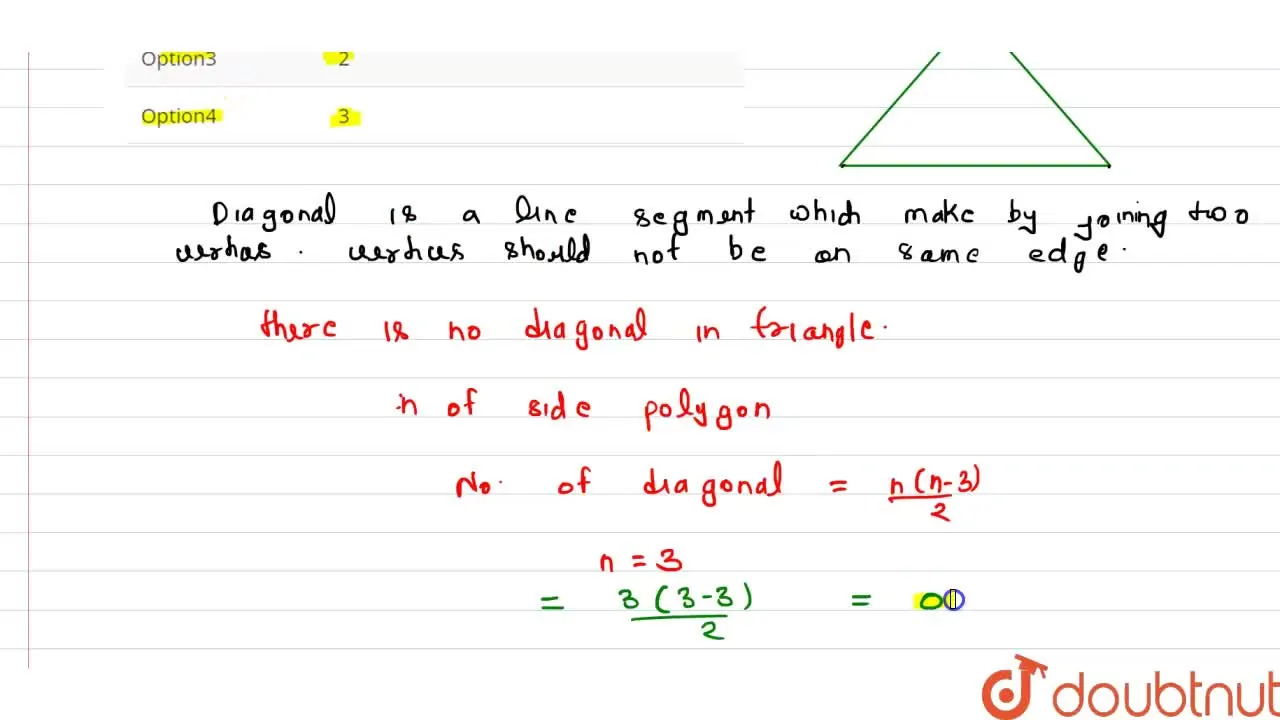 Option3 2
Option4 3
Diagonal is a line segment which make by joining two
should not be on same edge.
there is no diagonal in triangle.
n of side polygon
No. of diagonal = n(n-3)/2
n = 3
= 3(3-3)/2 = 0
doubtnut